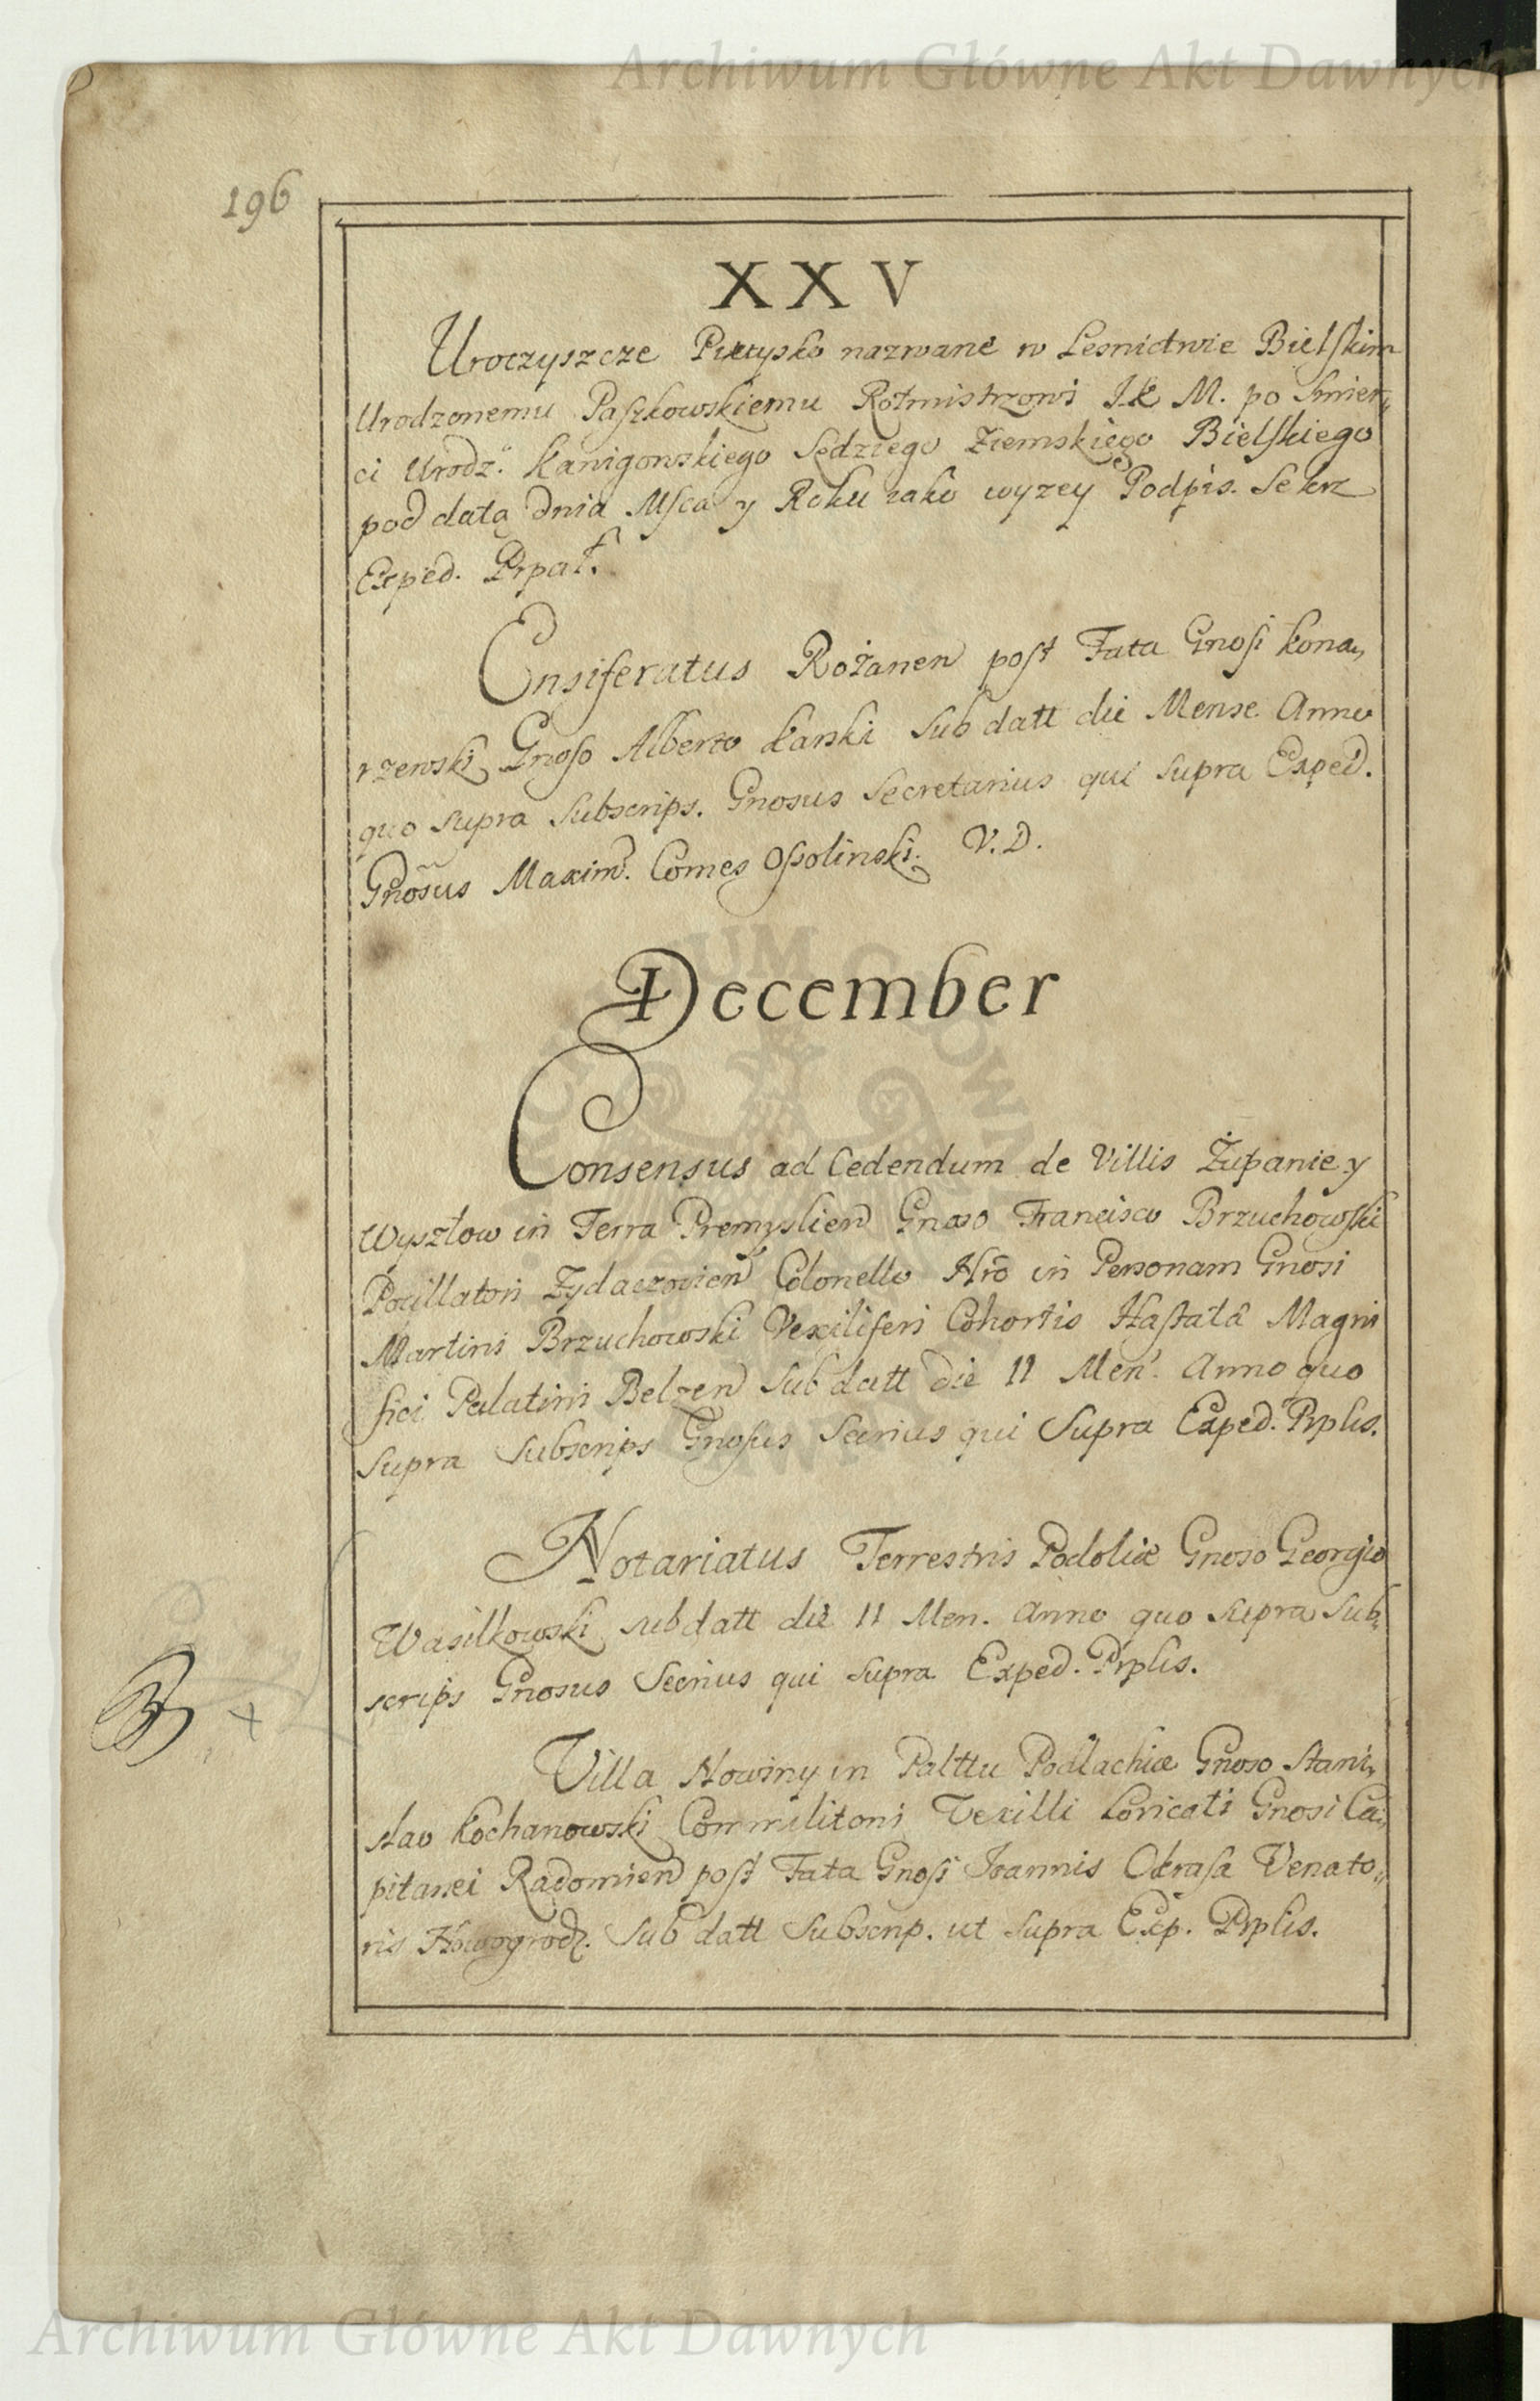 Archiwum Główne Akt Dawnych
196
XXV
Uroczyszcze nazwane w Lesnictwie Bielskim
Urodzonemu Paszkowskiemu Rotmistrzowi J.K M. po Smier„
ci Urodz.° Kanigowskiego Sędziego Ziemskiego Bielskiego
pod datą Dnia Msca y Roku iako wyzey Podpis. Sekrz
Exped. Prpat.
Ensiferatus Rożanen post Fata Gnosi Kona„
rzewski Gnoso Alberto Karski Sub datt die Mense Anno
quo supra Subscrips. Gnosus Secretarius qui supra Exped.
Gnosus Maxim. Comes Ossolinski. V.D.
December
Consensus ad Cedendum de Villis Żupanie y
Wyszłow in Terra Premyslien Gnoso Francisco Brzuchowski
Pocillatori Zydaczovien Colonello Nro in Personam Gnosi
Martini Brzuchowski Vexiliferi Cohortis Hastatâ Magni
fici Palatini Belzen Sub datt die 11 Men. Anno quo
supra Subscrips Gnosus Secrius qui Supra Exped. Prplis.
Notariatus Terrestris Podoliæ Gnoso Georgio
Wasilkowski sub datt die 11 Men. Anno quo supra Sub„
scrips Gnosus Secrius qui supra Exped. Prplis.
Villa Nowiny in Palttu Podlachiæ Gnoso Stani„
slao Kochanowski Commilitoni Vexilli Loricati Gnosi Ca„
pitanei Radomien post Fata Gnosi Joannis Okrasa Venato„
ris Nowogrodz. Sub datt Subscrip. ut supra Exp. Prplis.
Archiwum Główne Akt Dawnych